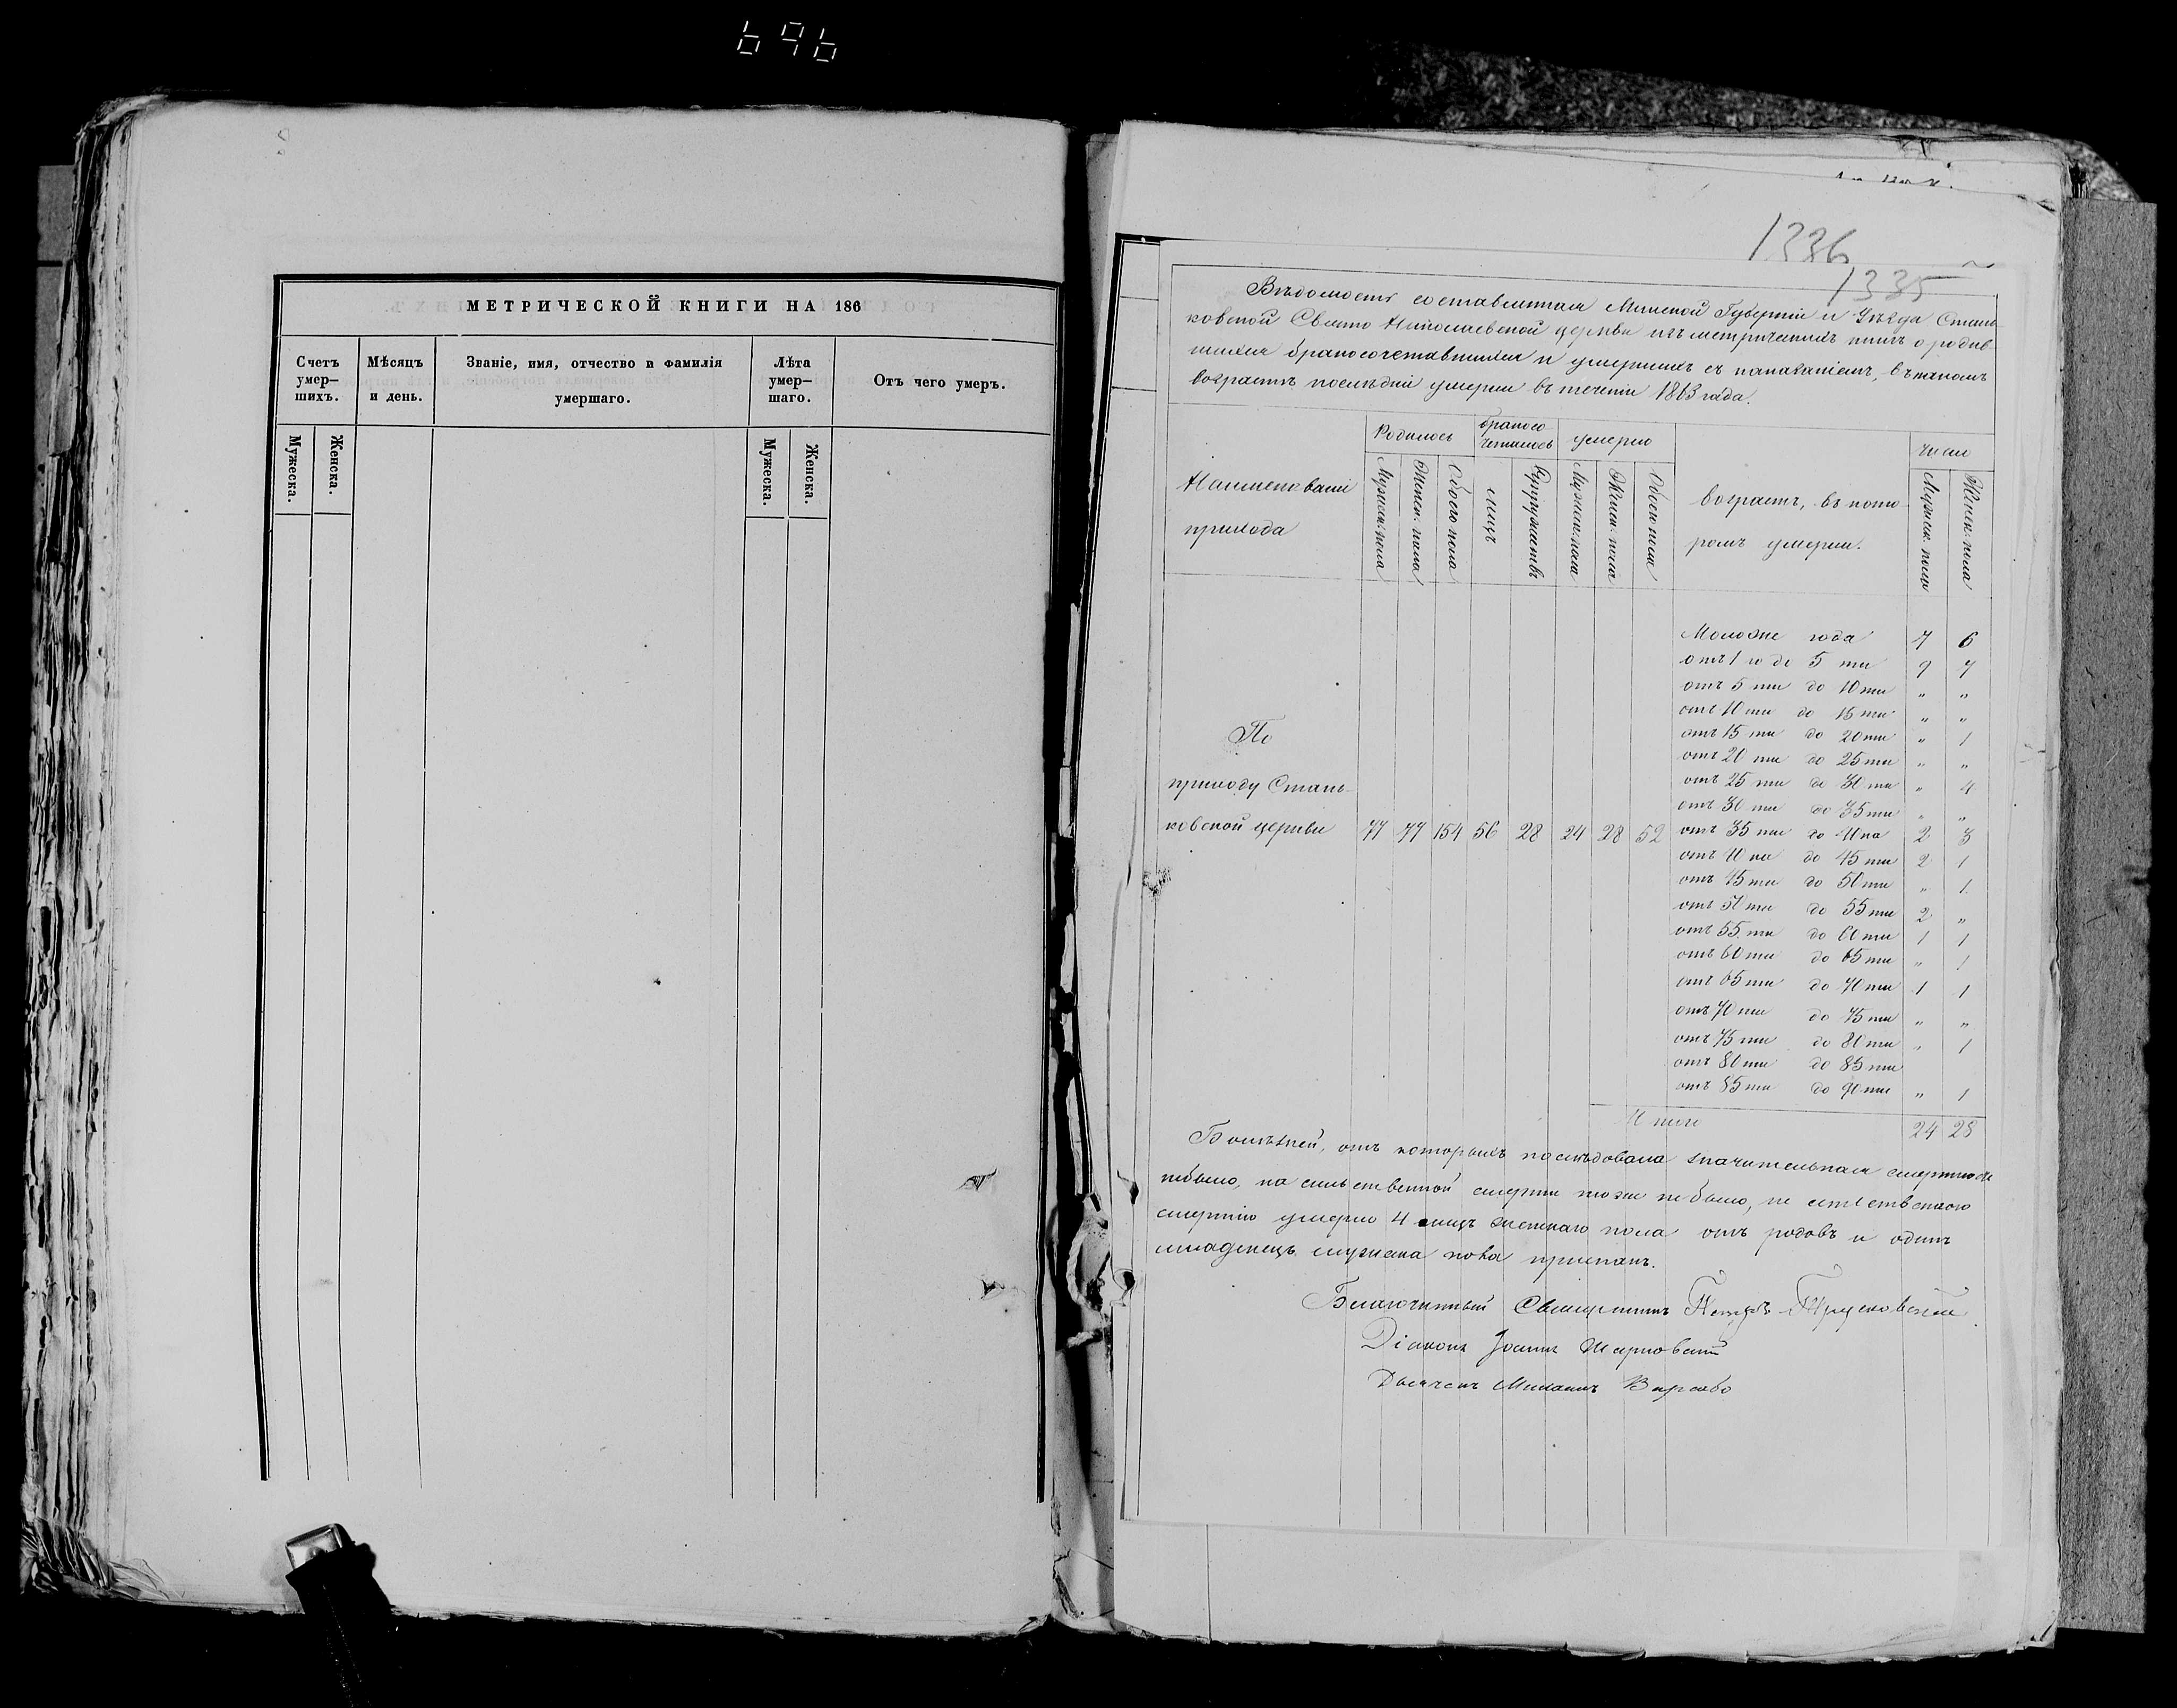 696
МЕТРИЧЕСКОЙ КНИГИ НА 186
Счетъ умер—шихъ.
Мѣсяцъ и день.
Званіе, имя, отчество и фамилія умершаго.
Лѣта умер—шаго.
Отъ чего умеръ.
Мужеска.
Женска.
Мужеска.
Женска.
1336
1335
Вѣдомость составленная Минской Губерніи и Уѣзда Стань-
ковской Свято Николаевской церкви изъ метрическихъ книгъ о родив-
шихся бракосочетавшихся и умершихъ съ показаніемъ, въ какомъ
возрастѣ послѣдніи умерли въ теченіи 1863 года.
Наименованіе прихода
Родилось
бракосочеталось
умерло
возрастъ, въ кото-
ромъ умерли.
Числа
Мужеск. пола
Женск. пола
Обоего пола
лицъ
Супружествъ
Мужеск. пола
Женск. пола
Обоего пола
Мужеск. пола
Женск. пола
Моложе года 7 6
отъ 1 го до 5 ти 9 7
отъ 5 ти до 10 ти „ „
отъ 10 ти до 15 ти „ „
отъ 15 ти до 20 ти „ 1
отъ 20 ти до 25 ти „ „
отъ 25 ти до 30 ти „ 4
отъ 30 ти до 35 ти „ „
отъ 35 ти до 40 ка 2 3
отъ 40 ка до 45 ти 2 1
отъ 45 ти до 50 ти „ 1
отъ 50 ти до 55 ти 2 „
отъ 55 ти до 60 ти 1 1
отъ 60 ти до 65 ти „ 1
отъ 65 ти до 70 ти 1 1
отъ 70 ти до 75 ти „ „
отъ 75 ти до 80 ти „ 1
отъ 80 ти до 85 ти
отъ 85 ти до 90 ти „ 1
По
приходу Стань-
ковской церкви 77 77 154 56 28 24 28 52
Итого 24 28
Болѣзней, отъ которыхъ послѣдовала значительная смертность
небыло, насильственной смерти тоже небыло, не естественною
смертію умерло 4 лицъ женскаго пола отъ родовъ и одинъ
младенецъ мужеска пола приспанъ.
Благочинный Священникъ Петръ
Діаконъ Іоаннъ
Дьячекъ Михаилъ